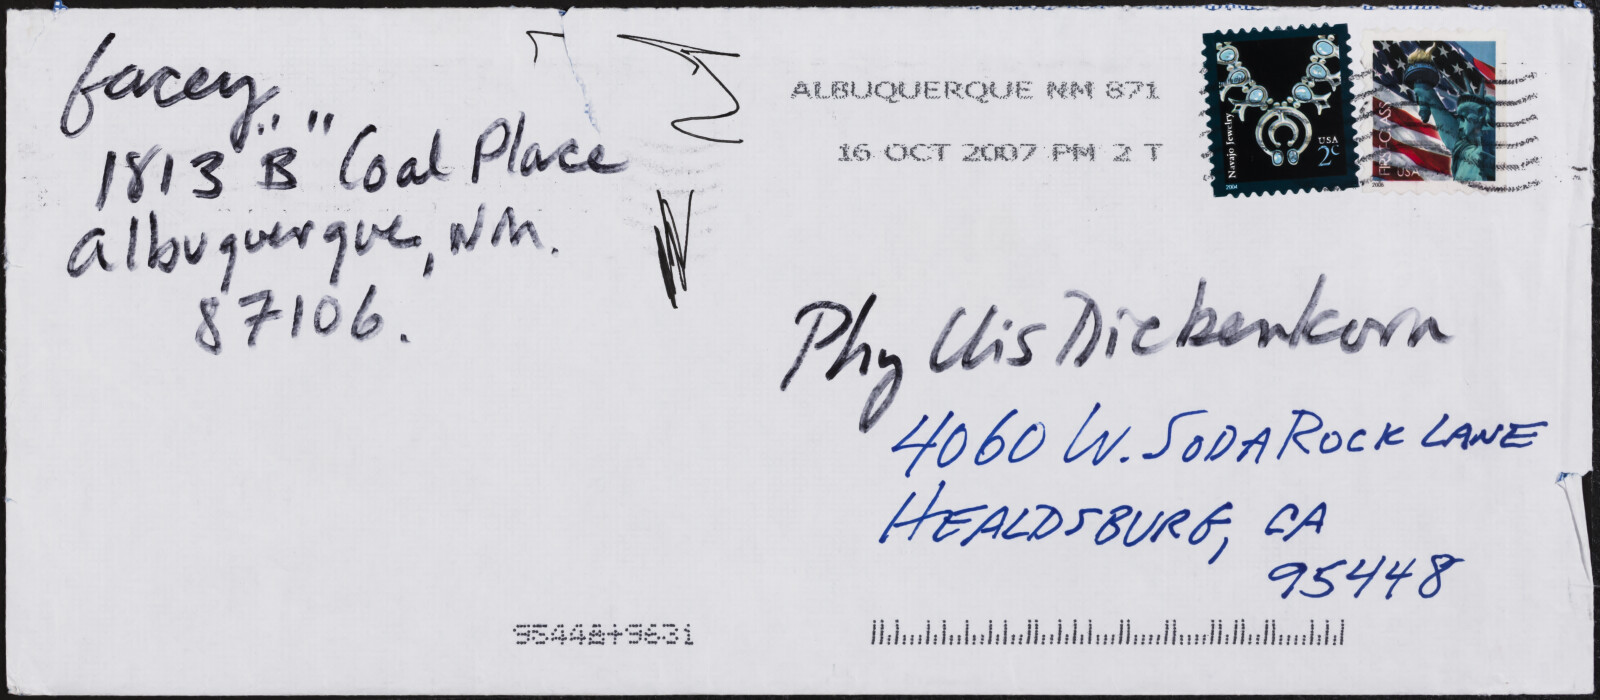 facey
1813 "B" Coal Place
albuquerque, NM.
87106.
ALBUQUERQUE NM 871
16 OCT 2007 PM 2 T
Navajo Jewelry
USA
2¢
2004
FIRST-CLASS
USA
2006
Phyllis Diebenkorn
4060 W. SODA ROCK LANE
HEALDSBURG, CA
95448
95448+9631